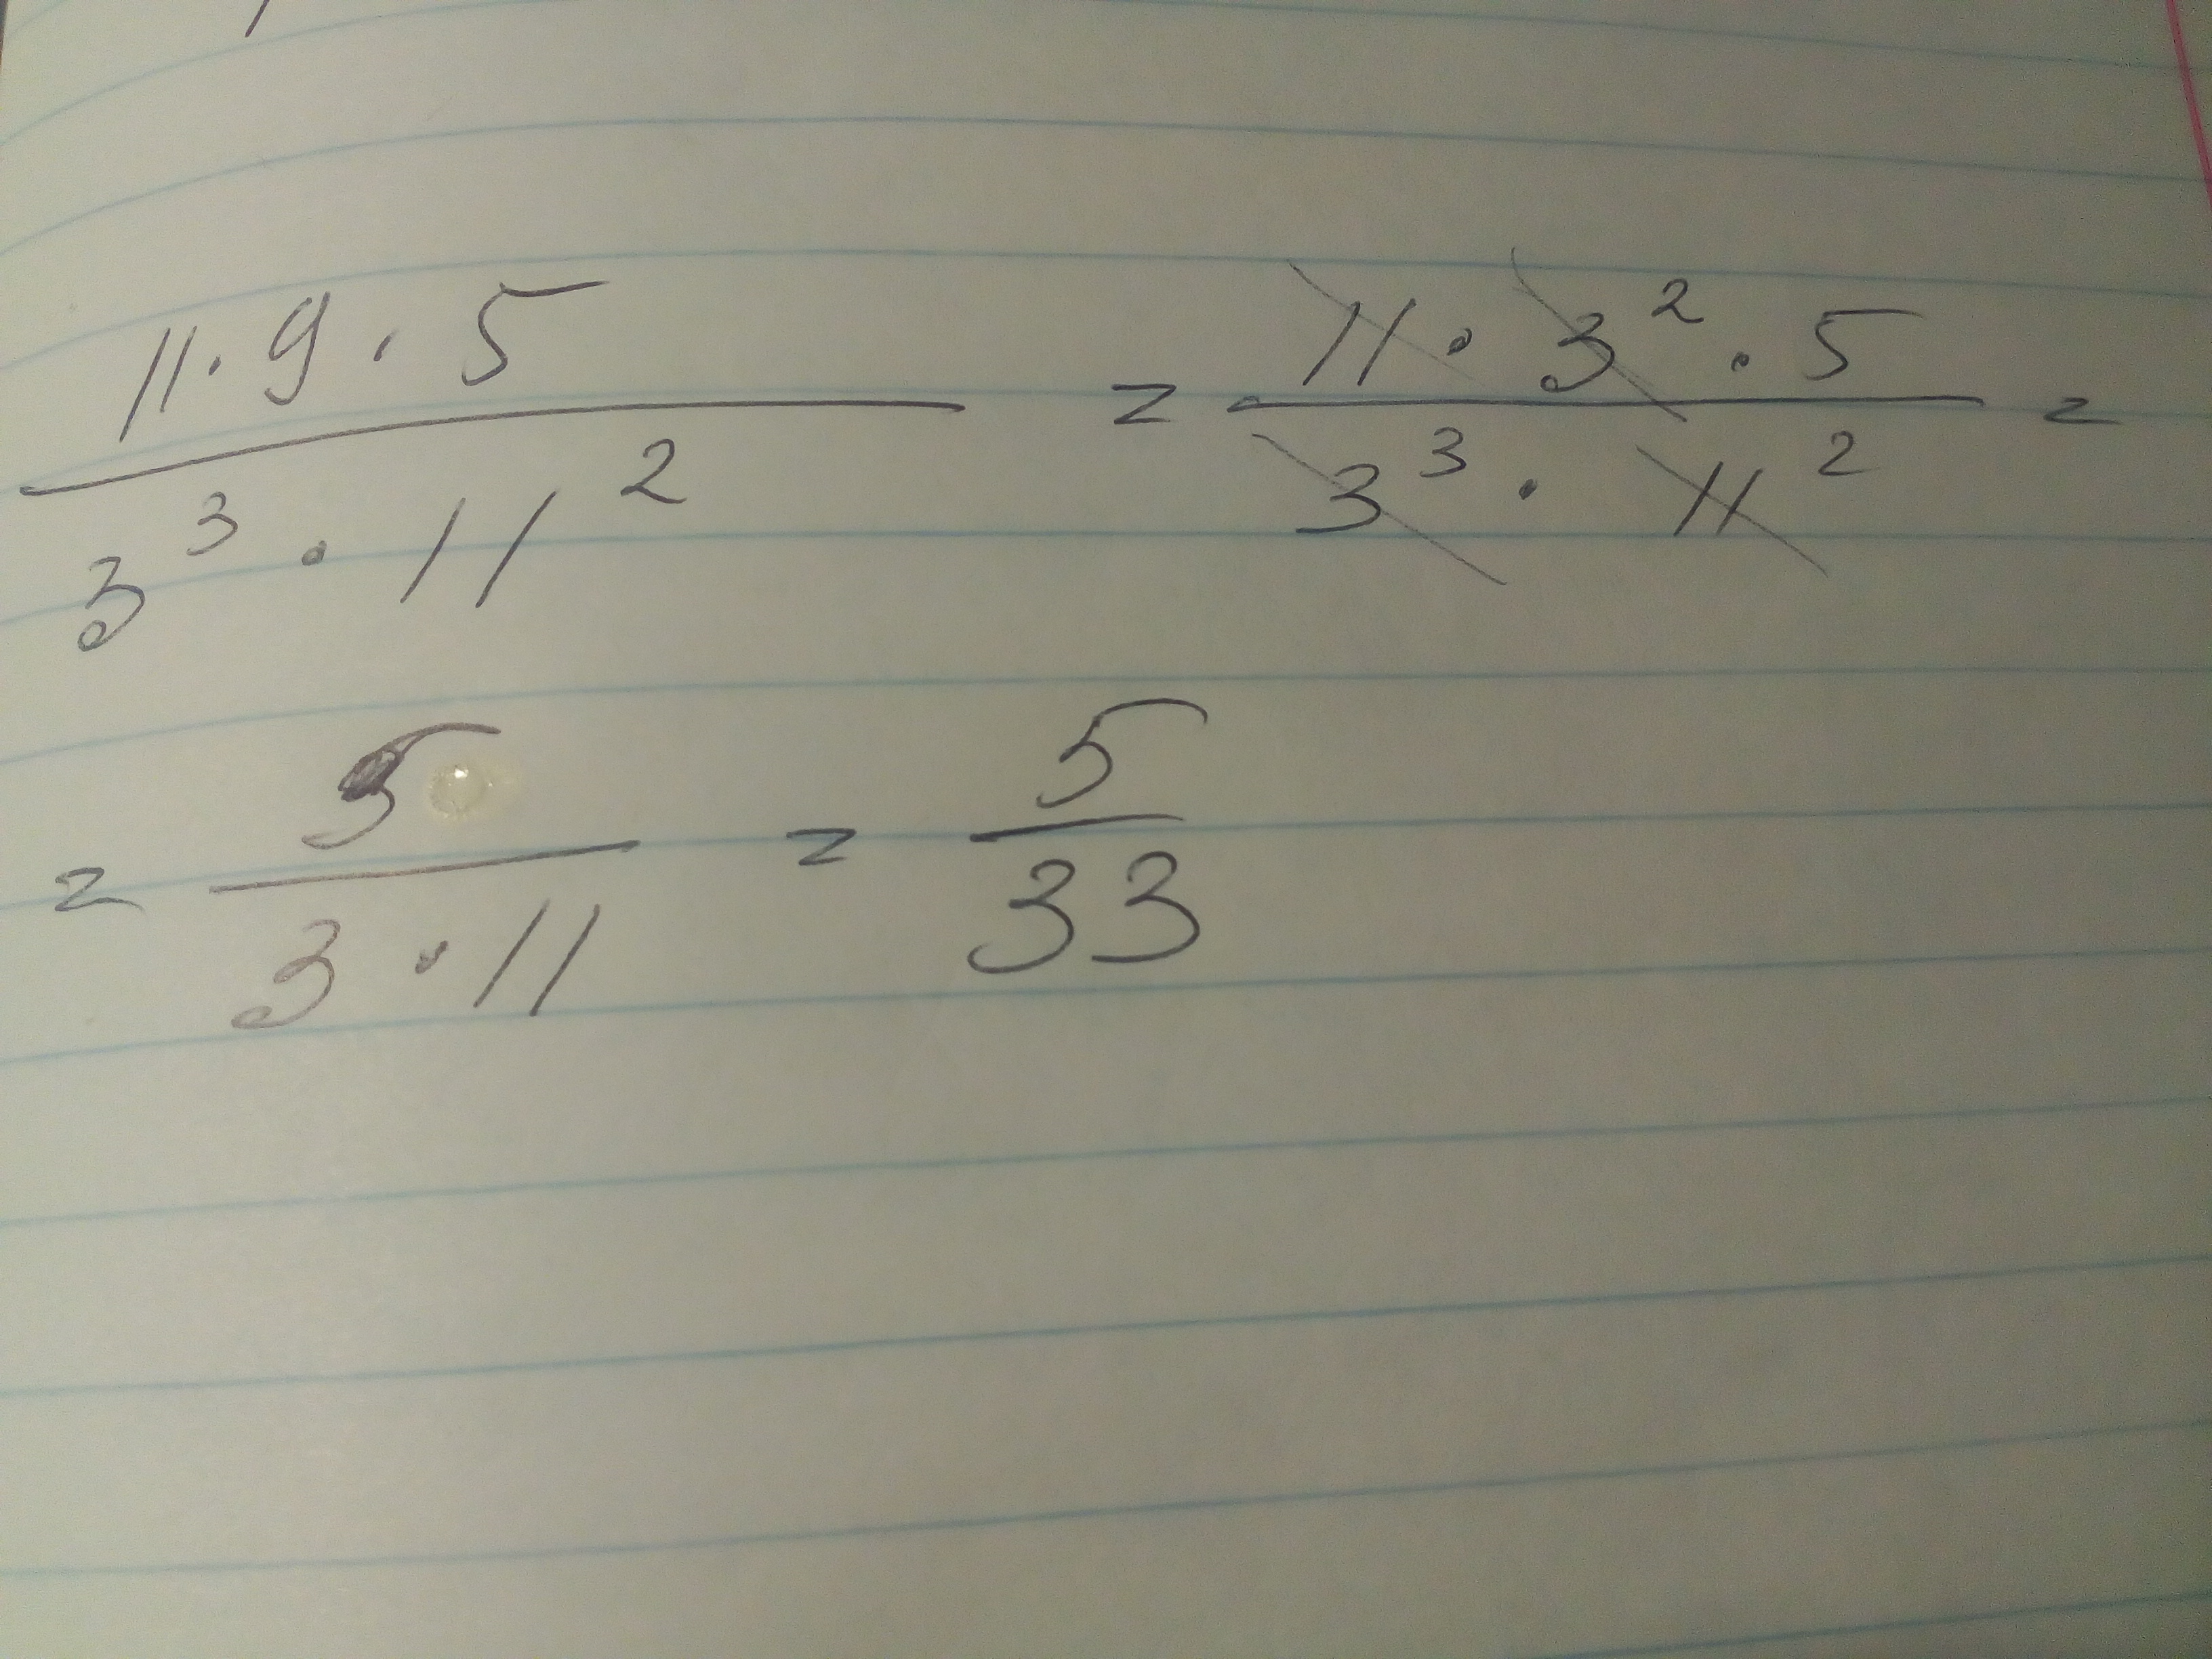 11 · 9 · 5 / 3³ · 11² = 11 · 3² · 5 / 3³ · 11² =
= 5 / 3 · 11 = 5 / 33